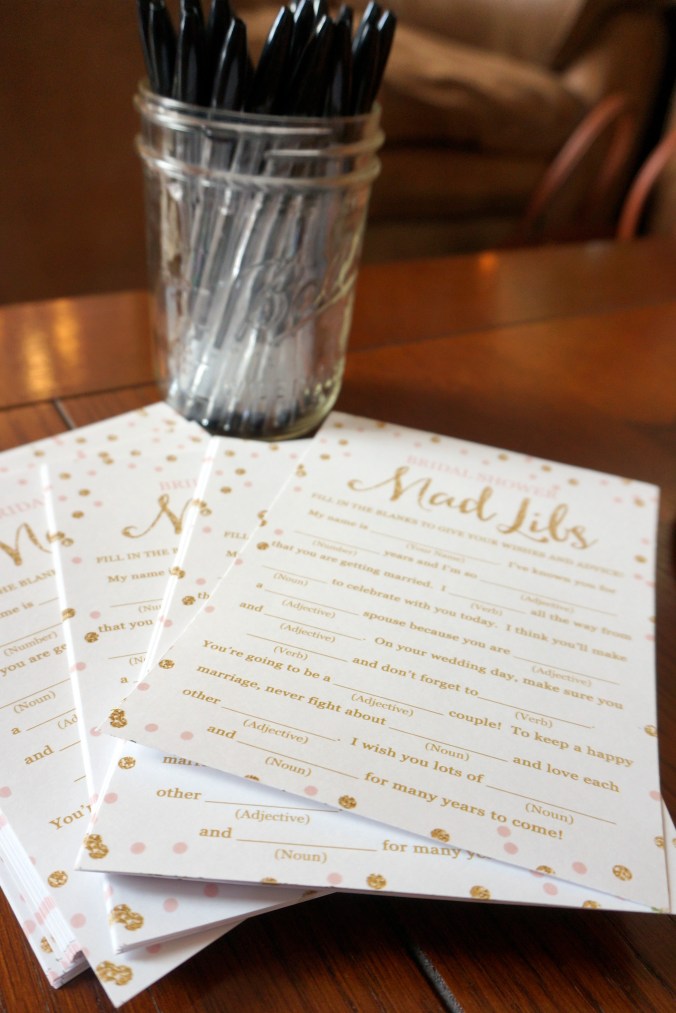 BRIDAL SHOWER
Mad Libs
FILL IN THE BLANKS TO GIVE YOUR WISHES AND ADVICE!
My name is ____________. I've known you for
(Your Name)
____________ years and I'm so ____________
(Number) (Adjective)
that you are getting married. I ____________ all the way from
(Verb)
____________ to celebrate with you today. I think you'll make
(Noun)
a ____________ spouse because you are ____________
(Adjective) (Adjective)
and ____________. On your wedding day, make sure you
(Adjective)
____________ and don't forget to ____________.
(Verb) (Verb)
You're going to be a ____________ couple! To keep a happy
(Adjective)
marriage, never fight about ____________ and love each
(Noun)
other ____________. I wish you lots of ____________
(Adjective) (Noun)
and ____________ for many years to come!
(Noun)
other ____________
(Adjective)
and ____________ for many
(Noun)
FILL IN THE
My name
(Number)
that you
FILL IN THE BLANKS
My name is
(Number)
(Noun)
a
(Adjective)
and